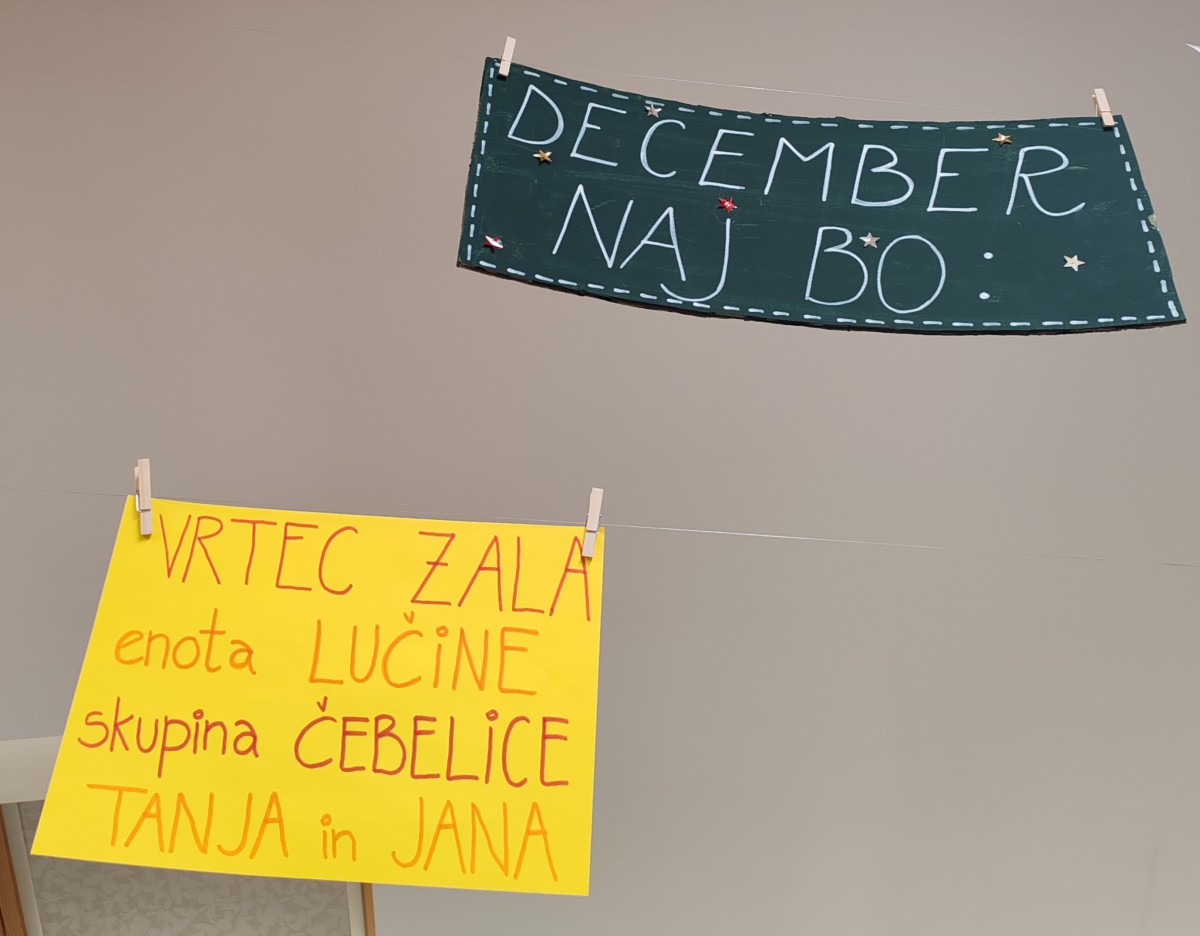 DECEMBER
NAJ BO:
VRTEC ZALA
enota LUČiNE
skupina ČEBELiCE
TANJA in JANA